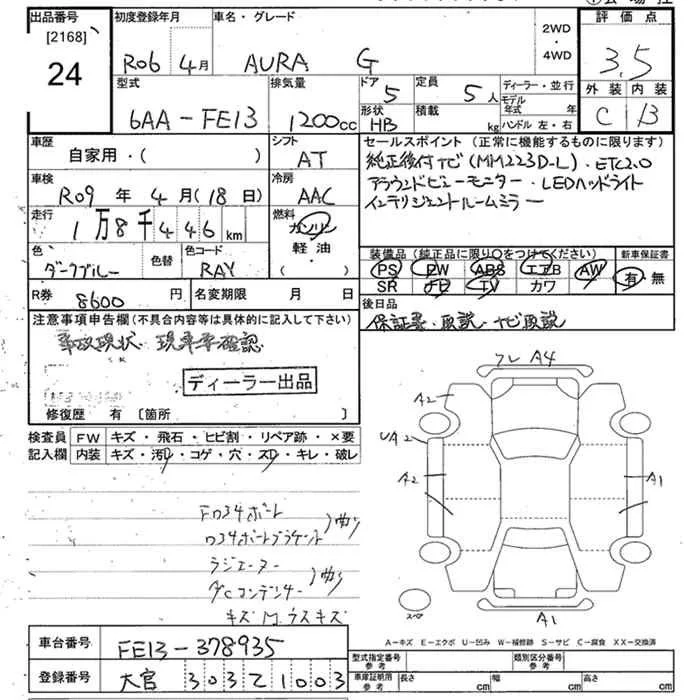 出品番号
[2168]
24
初度登録年月
R06 4月
車名・グレード
AURA G
2WD
・
4WD
評価点
3.5
外装 内装
C B
型式
6AA-FE13
排気量
1200cc
ドア
5
定員
5人
ディーラー・並行
モデル年式 年
形状
HB
積載
kg
ハンドル 左・右
車歴
自家用・( )
シフト
AT
セールスポイント(正常に機能するものに限ります)
純正後付ナビ(MM223D-L)・ETC2.0
アラウンドビューモニター・LEDヘッドライト
インテリジェントルームミラー
車検
R09年 4月(18日)
冷房
AAC
走行
1万8千446km
燃料
ガソリン
軽・油
( )
色
ダークブルー
色替
色コード
RAY
装備品(純正品に限り○をつけてください)
PS PW ABS エアB AW
SR ナビ TV カワ
新車保証書
有・無
R券
8600円
名変期限 月 日
後日品
保証書・取説・ナビ取説
注意事項申告欄(不具合内容等は具体的に記入して下さい)
事故現状 現車要確認
ディーラー出品
修復歴 有 [箇所 ]
検査員記入欄
FW キズ・飛石・ヒビ割・リペア跡・×要
内装 キズ・汚れ・コゲ・穴・スレ・キレ・破レ
フロスサポート
ロスサポートブラケット 曲り
ラジエーター
A/Cコンデンサー 曲り
キズ M.ウスキズ
フレ A4
A2
UA2
A2
A1
スペア
A1
A-キズ E-エクボ U-凹み W-補修跡 S-サビ C-腐食 XX-交換済
車台番号
FE13-378935
登録番号
大宮 303 て 1003
型式指定番号
参考
類別区分番号
参考
車庫証明用
参考
長さ cm
幅 cm
高さ cm